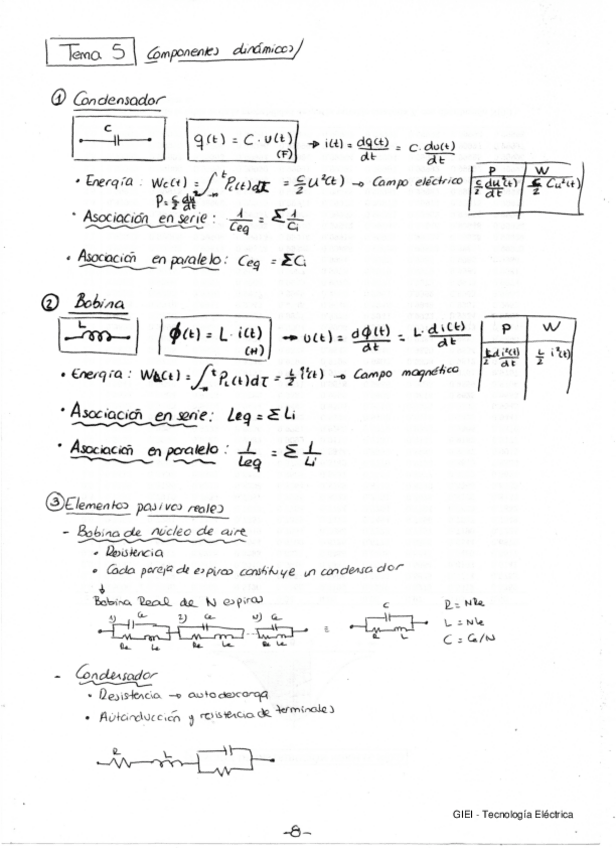 Tema 5 Componentes dinámicos/
① Condensador
C
q(t) = C · u(t) (F) → i(t) = dq(t)/dt = C · du(t)/dt
P W
• Energía : Wc(t) = ∫_{-∞}^t Pc(t)dτ = C/2 u²(t) → Campo eléctrico
C/2 du²(t)/dt C/2 Cu²(t)
P = C/2 du²/dt
• Asociación en serie : 1/Ceq = Σ 1/Ci
• Asociación en paralelo : Ceq = ΣCi
② Bobina
L
ϕ(t) = L · i(t) (H) → u(t) = dϕ(t)/dt = L · di(t)/dt
P W
L/2 di²(t)/dt L/2 i²(t)
• Energía : WL(t) = ∫_{-∞}^t PL(t)dτ = L/2 i²(t) → Campo magnético
• Asociación en serie : Leq = Σ Li
• Asociación en paralelo : 1/Leq = Σ 1/Li
③ Elementos pasivos reales
- Bobina de núcleo de aire
• Resistencia
• Cada pareja de espiras constituye un condensador
↓
Bobina Real de N espiras
1) Ce 2) Ce N) Ce C
Re Le Re Le Re Le R L
R = NRe
L = NLe
C = Ce/N
- Condensador
• Resistencia → autodescarga
• Autoinducción y resistencia de terminales
R L
GIEI - Tecnología Eléctrica
-8-